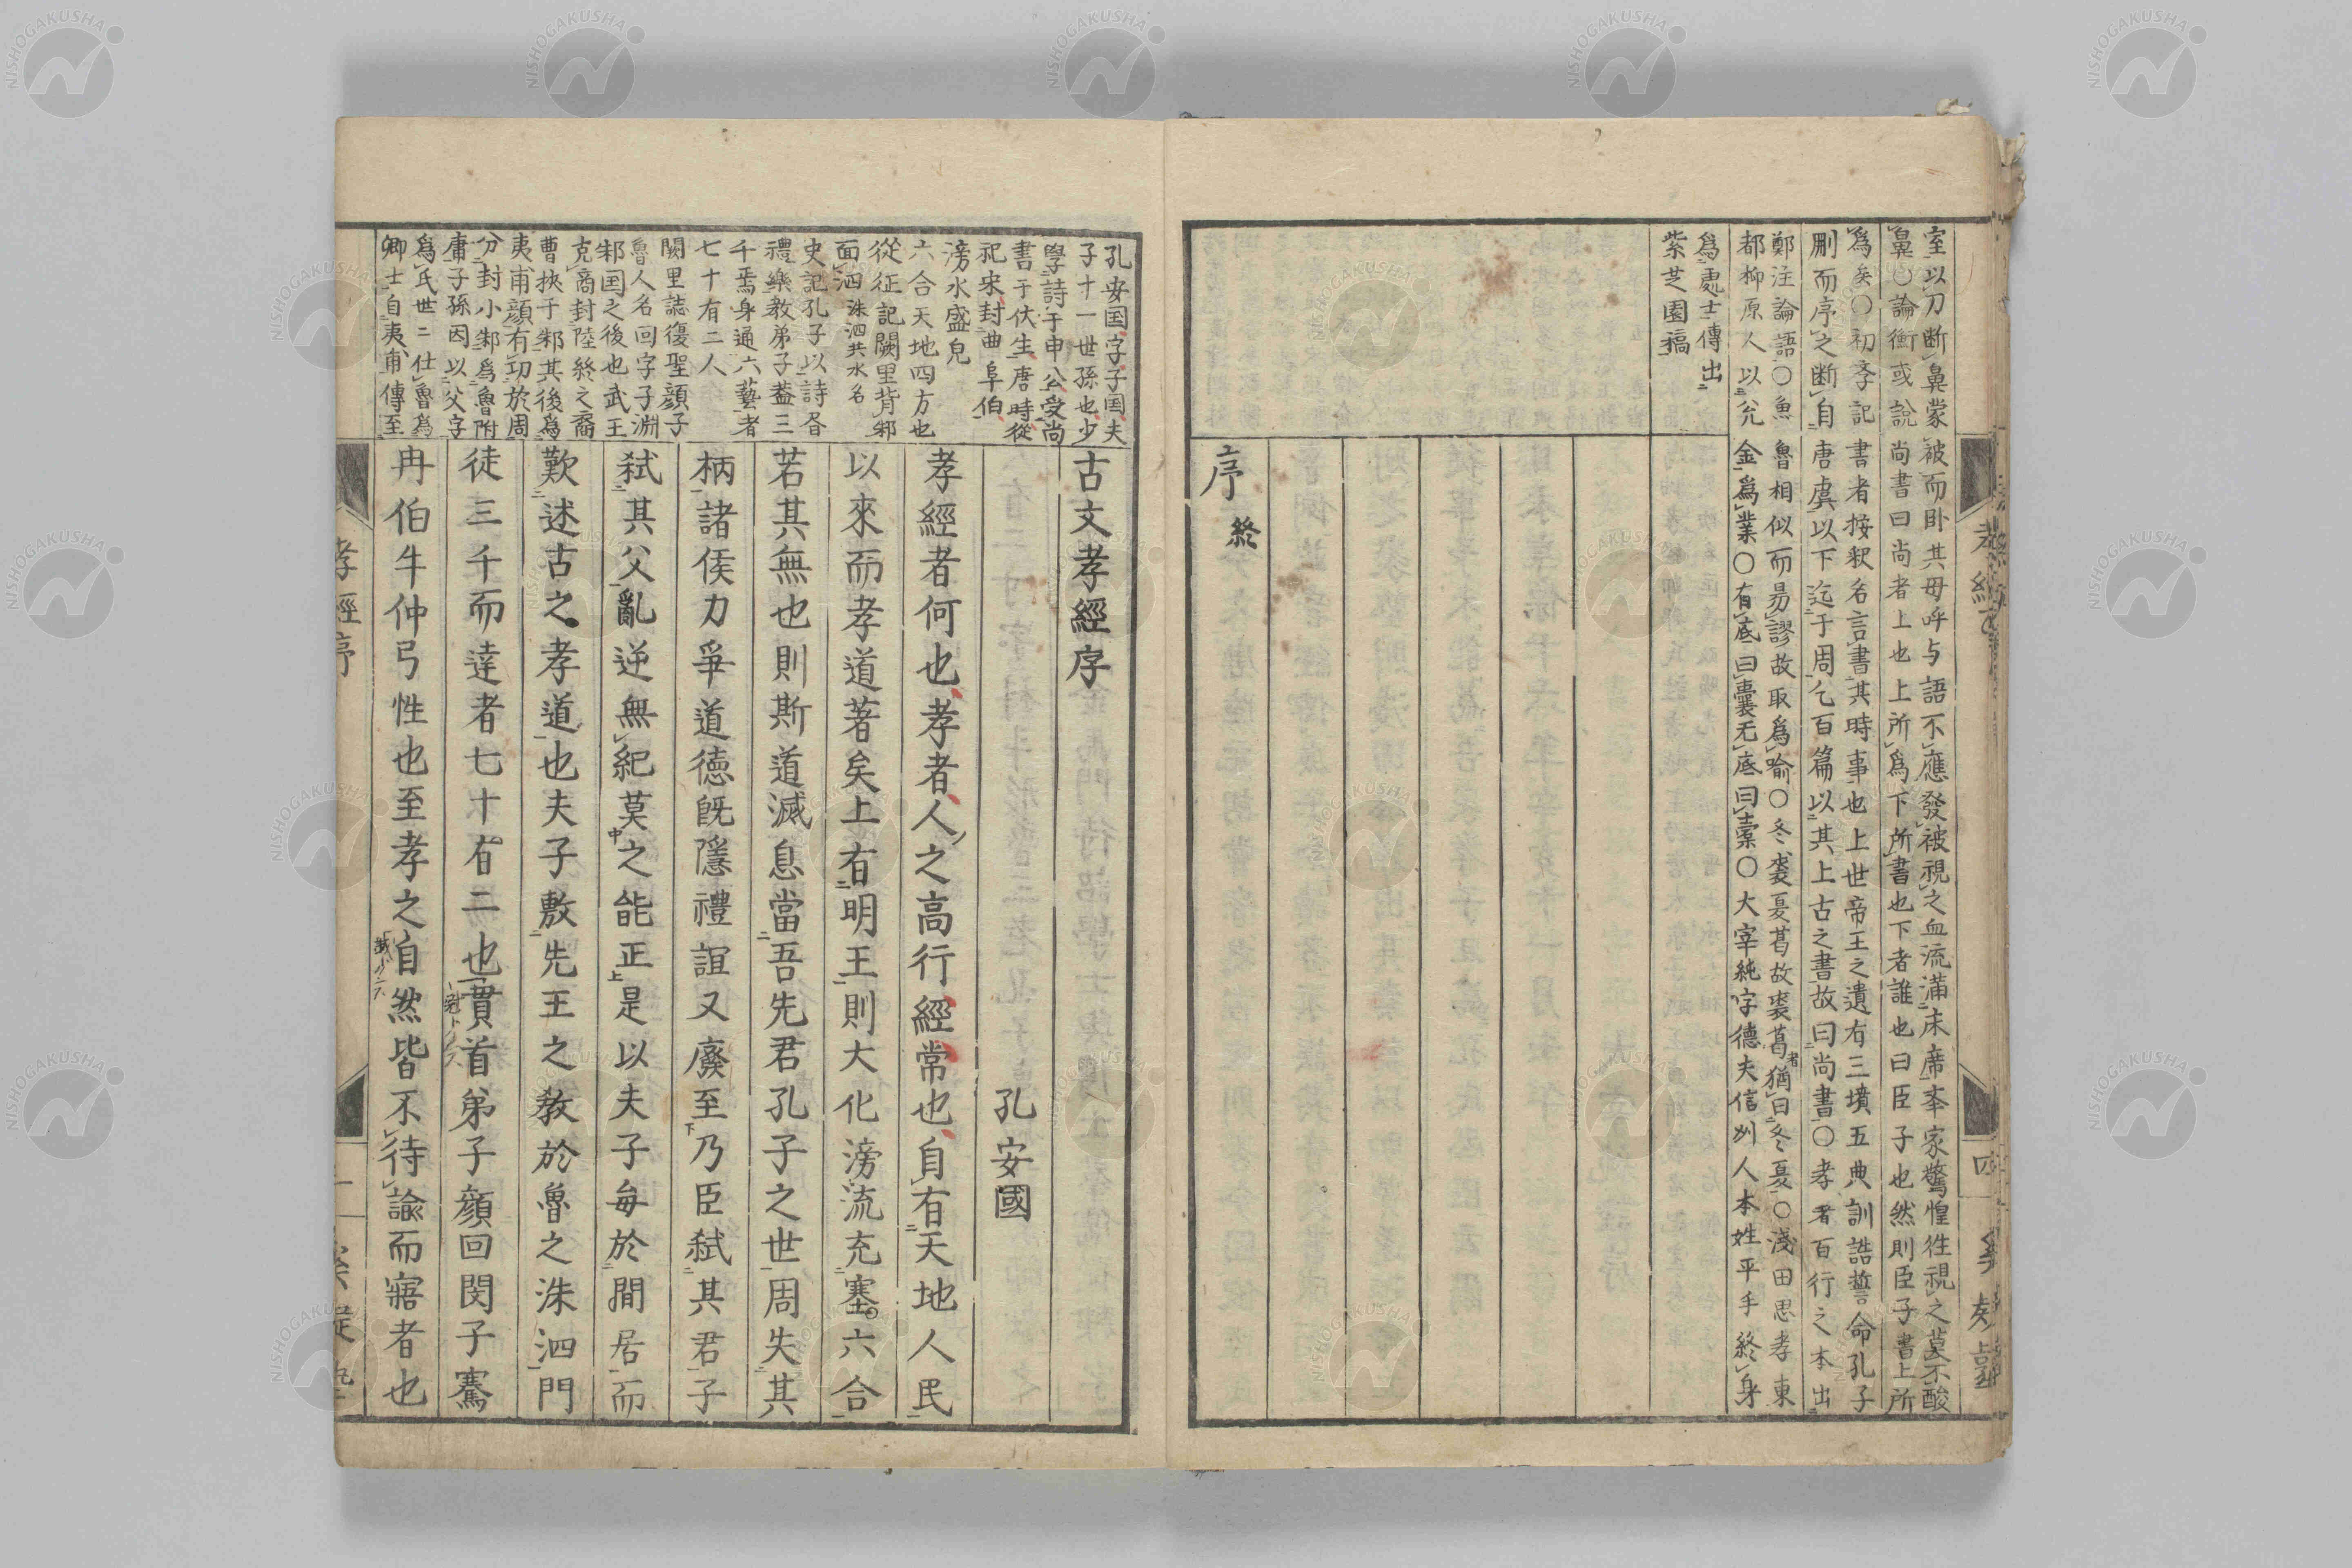 室以刀断鼻蒙被而卧其母呼与語不應發被視之血流滿床席奉家驚惶徃視之莫不酸
鼻○論衡或說尚書曰尚者上也上所爲下所書也下者誰也曰臣子也然則臣子書上所
爲矣○初季記書者按釈名言書其時事也上世帝王之遺有三墳五典訓誥誓命孔子
刪而序之断自唐虞以下迄于周乞百篇以其上古之書故曰尚書○孝者百行之本出
鄭注論語○魚魯相似而易謬故取爲喻○冬裘夏葛故裘葛者猶曰冬夏○淺田思孝東
都柳原人以兊金爲業○有底曰囊无底曰橐○大宰純字德夫信州人本姓平手終身
爲處士傳出
紫芝園稿
序 終
孔安国字子国夫
子十一世孫也少
學詩于申公受尚
書于伏生唐時從
祀宋封曲阜伯
滂水盛皃
六合天地四方也
從征記闕里背邾
面泗 洙泗共水名
史記孔子以詩昏
禮樂教弟子蓋三
千焉身通六藝者
七十有二人
闕里誌復聖顔子
魯人名回字子淵
邾国之後也武王
克商封陸終之裔
曹挾于邾其後爲
夷甫顔有功於周
分封小邾爲魯附
庸子孫因以父字
爲氏世二仕魯爲
卿士自夷甫傳至
古文孝經序
孔安國
孝經者何也孝者人之高行經常也自有天地人民
以來而孝道著矣上有明王則大化滂流充塞六合
若其無也則斯道滅息當吾先君孔子之世周失其
柄諸侯力爭道德既隱禮誼又廢至乃臣弒其君子
弒其父亂逆無紀莫之能正是以夫子每於間居而
歎述古之孝道也夫子敷先王之教於魯之洙泗門
徒三千而達者七十有二也貫首弟子顔回閔子騫
冉伯牛仲弓性也至孝之自然皆不待諭而寤者也
孝經序